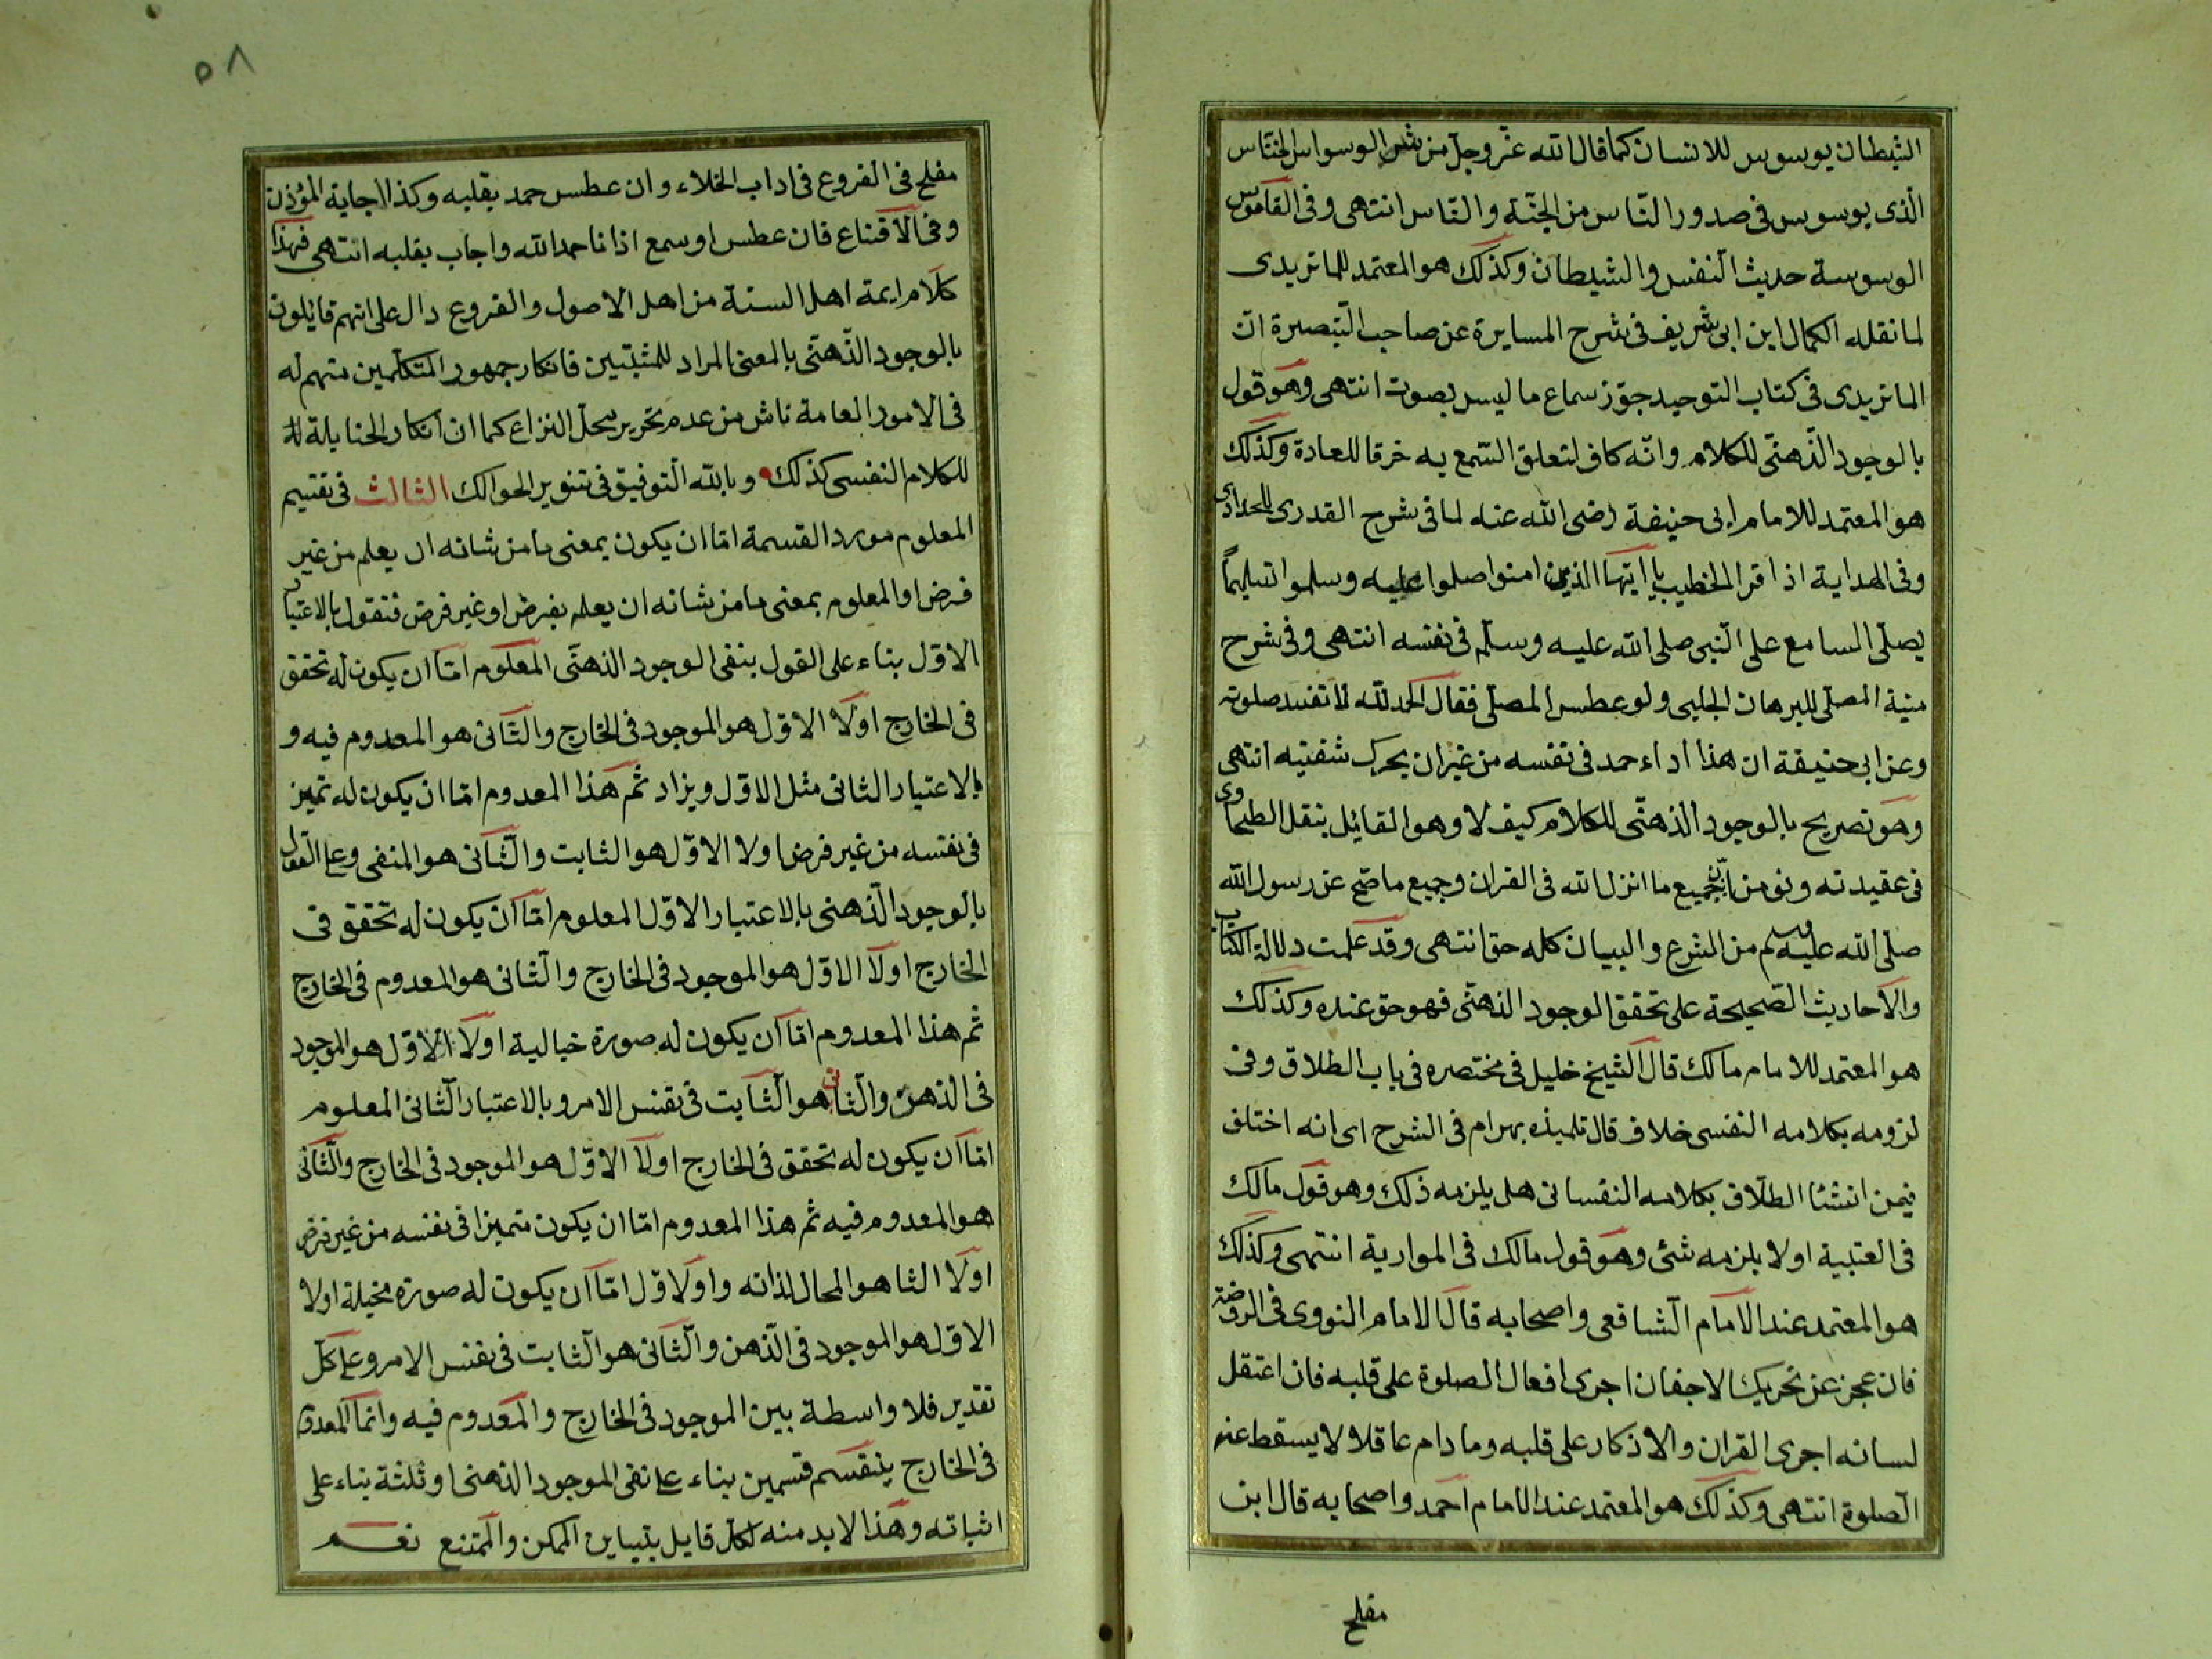 الشيطان يوسوس للانسان كما قال الله عز وجل من شر الوسواس الخناس
الذى يوسوس فى صدور الناس من الجنة والناس انتهى وفى القاموس
الوسوسة حديث النفس والشيطان وكذلك هو المعتمد للماتريدى
لما نقله الكمال ابن ابى شريف فى شرح المسايرة عن صاحب التبصرة ان
الماتريدى فى كتاب التوحيد جوّز سماع ما ليس بصوت انتهى وهو قول
بالوجود الذهنى للكلام وانه كاف لتعلق السمع به خرقا للعادة وكذلك
هو المعتمد للامام ابى حنيفة رضى الله عنه لما فى شرح القدرى للحدادى
وفى الهداية اذا قرا الخطيب يا ايها الذين امنوا صلوا عليه وسلموا تسليمًا
يصلى السامع على النبى صلى الله عليه وسلم فى نفسه انتهى وفى شرح
منية المصلى للبرهان الحلبى ولو عطس المصلى فقال الحمد لله لا تفسد صلوته
وعن ابى حنيفة ان هذا اداء حمد فى نفسه من غير ان يحرك شفتيه انتهى
وهو تصريح بالوجود الذهنى للكلام كيف لا وهو القائل بنقل الطحاوى
فى عقيدته ونومن بان جميع ما انزل الله فى القران وجميع ما صح عن رسول الله
صلى الله عليه وسلم من الشرع والبيان كله حق انتهى وقد علمت دلالة الكتاب
والاحاديث الصحيحة على تحقق الوجود الذهنى فهو حق عنده وكذلك
هو المعتمد للامام مالك قال الشيخ خليل فى مختصره فى باب الطلاق وفى
لزومه بكلامه النفسى خلاف قال تلميذه بهرام فى الشرح اى انه اختلف
فيمن انشئا الطلاق بكلامه النفسانى هل يلزمه ذلك وهو قول مالك
فى العتبية اولا يلزمه شئ وهو قول مالك فى الموارية انتهى وكذلك
هو المعتمد عند الامام الشافعى واصحابه قال الامام النووى فى الروضة
فان عجز عن تحريك الاجفان اجرى افعال الصلوة على قلبه فان اعتقل
لسانه اجرى القران والاذكار على قلبه وما دام عاقلا لا يسقط عنه
الصلوة انتهى وكذلك هو المعتمد عند الامام احمد واصحابه قال ابن
مفلح
٥٨
مفلح فى الفروع فى اداب الخلاء وان عطس حمد بقلبه وكذا اجابة المؤذن
وفى الاقناع فان عطس او سمع اذانا حمد الله واجاب بقلبه انتهى فهذا
كلام ايمة اهل السنة من اهل الاصول والفروع دال على انهم قايلون
بالوجود الذهنى بالمعنى المراد للمثبتين فانكار جمهور المتكلمين منهم له
فى الامور العامة ناش من عدم تحرير محل النزاع كما ان انكار الحنابلة
للكلام النفسى كذلك وبالله التوفيق فى تنوير الحوالك الثالث فى تقسيم
المعلوم مورد القسمة اما ان يكون بمعنى ما من شانه ان يعلم من غير
فرض او المعلوم بمعنى ما من شانه ان يعلم بفرض او غير فرض فنقول بالاعتبار
الاول بناء على القول بنفى الوجود الذهنى المعلوم اما ان يكون له تحقق
فى الخارج اولا الاول هو الموجود فى الخارج والثانى هو المعدوم فيه و
بالاعتبار الثانى مثل الاول ويزاد ثم هذا المعدوم اما ان يكون له تميز
فى نفسه من غير فرض اولا الاول هو الثابت والثانى هو المنفى وعلى القول
بالوجود الذهنى بالاعتبار الاول المعلوم اما ان يكون له تحقق فى
الخارج اولا الاول هو الموجود فى الخارج والثانى هو المعدوم فى الخارج
ثم هذا المعدوم اما ان يكون له صورة خيالية اولا الاول هو الموجود
فى الذهن والثانى هو الثابت فى نفس الامر وبالاعتبار الثانى المعلوم
اما ان يكون له تحقق فى الخارج اولا الاول هو الموجود فى الخارج والثانى
هو المعدوم فيه ثم هذا المعدوم اما ان يكون متميزا فى نفسه من غير فرض
اولا الثا هو المحال لذاته واولاول اما ان يكون له صورة مخيلة اولا
الاول هو الموجود فى الذهن والثانى هو الثابت فى نفس الامر وعلى كل
تقدير فلا واسطة بين الموجود فى الخارج والمعدوم فيه وانما المعدوم
فى الخارج ينقسم قسمين بناء على نفى الموجود الذهنى او ثلثة بناء على
اثباته وهذا لابد منه لكل قايل بتباين الممكن والممتنع نعم